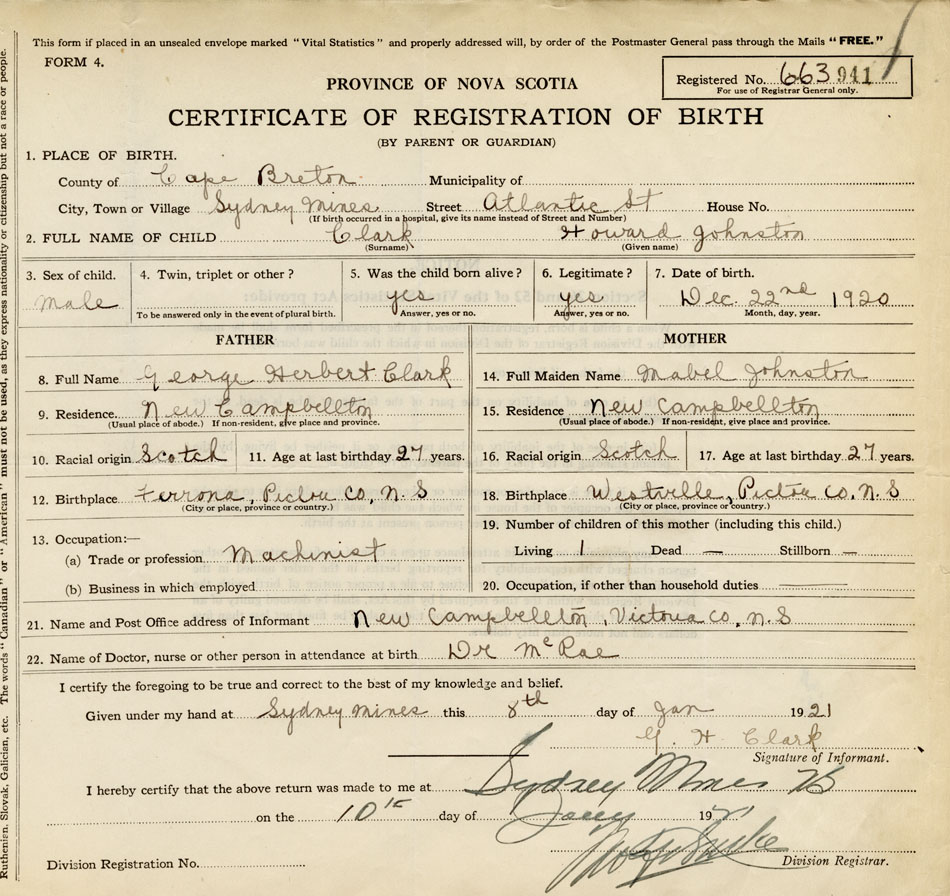 This form if placed in an unsealed envelope marked "Vital Statistics" and properly addressed will, by order of the Postmaster General pass through the Mails "FREE."
FORM 4.
Registered No. 663941
For use of Registrar General only.
PROVINCE OF NOVA SCOTIA
CERTIFICATE OF REGISTRATION OF BIRTH
(BY PARENT OR GUARDIAN)
1. PLACE OF BIRTH.
County of Cape Breton Municipality of
City, Town or Village Sydney Mines Street Atlantic St House No.
(If birth occurred in a hospital, give its name instead of Street and Number)
2. FULL NAME OF CHILD Clark Howard Johnston
(Surname) (Given name)
3. Sex of child. 4. Twin, triplet or other? 5. Was the child born alive? 6. Legitimate? 7. Date of birth.
male yes yes Dec. 22nd 1920
To be answered only in the event of plural birth. Answer, yes or no. Answer, yes or no. Month, day, year.
FATHER MOTHER
8. Full Name George Herbert Clark 14. Full Maiden Name Mabel Johnston
9. Residence New Campbellton 15. Residence New Campbellton
(Usual place of abode.) If non-resident, give place and province. (Usual place of abode.) If non-resident, give place and province.
10. Racial origin Scotch 11. Age at last birthday 27 years. 16. Racial origin Scotch 17. Age at last birthday 27 years.
12. Birthplace Ferrona, Pictou Co, N.S 18. Birthplace Westville, Pictou Co. N.S
(City or place, province or country.) (City or place, province or country.)
19. Number of children of this mother (including this child.)
13. Occupation:—
(a) Trade or profession Machinist Living 1 Dead — Stillborn —
(b) Business in which employed 20. Occupation, if other than household duties
21. Name and Post Office address of Informant New Campbellton, Victoria Co. N.S
22. Name of Doctor, nurse or other person in attendance at birth Dr McRae
I certify the foregoing to be true and correct to the best of my knowledge and belief.
Given under my hand at Sydney Mines this 8th day of Jan 1921
G. H. Clark
Signature of Informant.
I hereby certify that the above return was made to me at Sydney Mines
on the 10 day of Jany 19
Division Registration No. Division Registrar.
Ruthenian, Slovak, Galician, etc. The words "Canadian" or "American" must not be used, as they express nationality or citizenship but not a race or people.